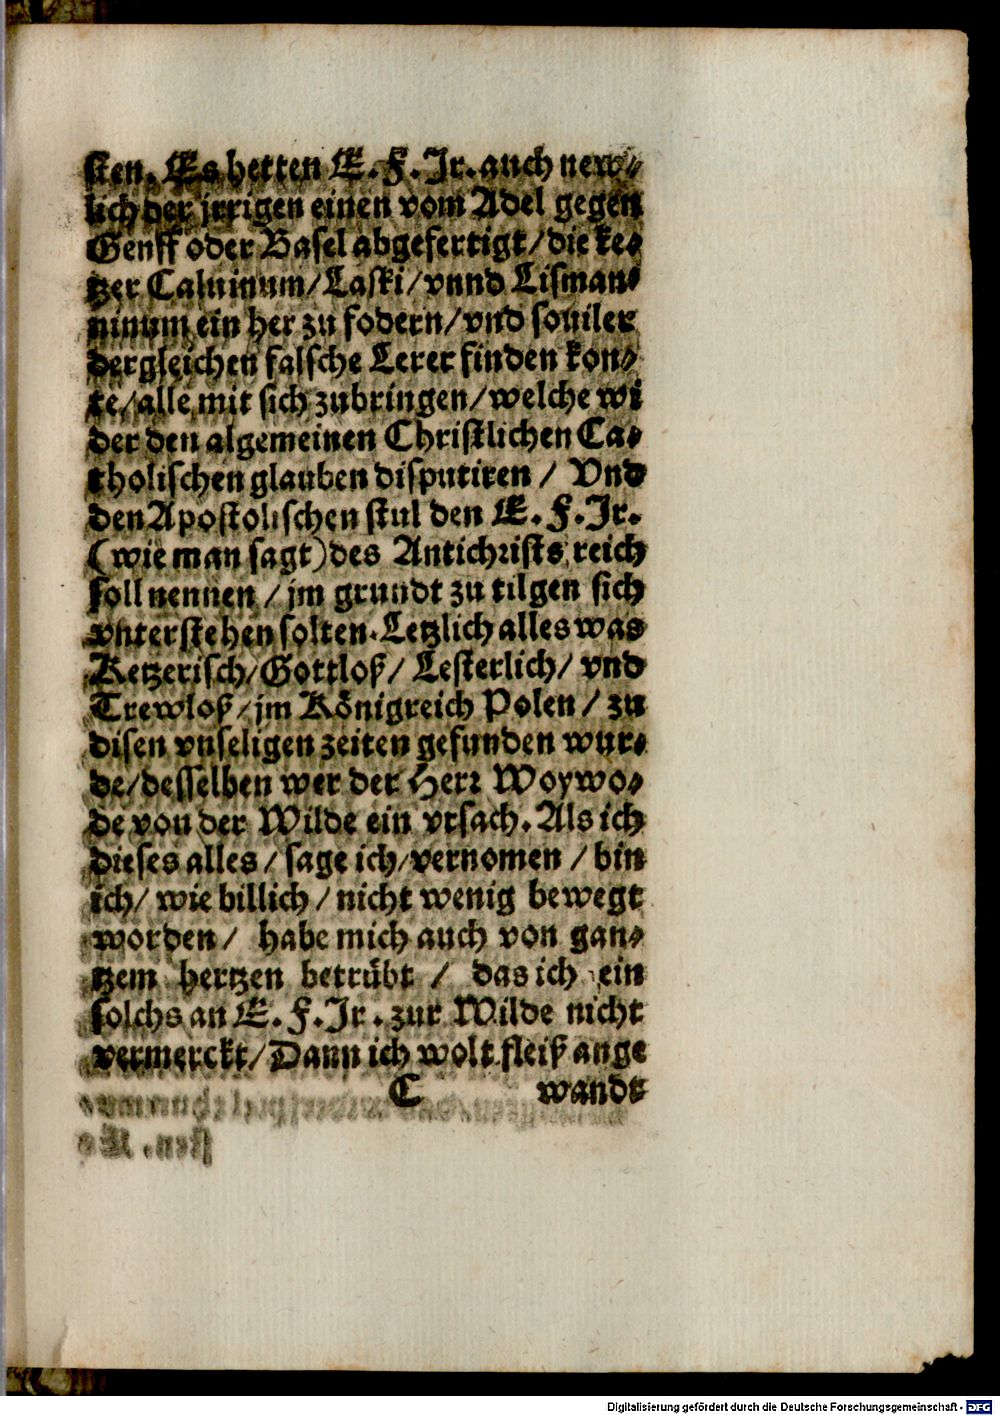 sten. Es hetten E. F. Jr. auch new⸗
lich der jrrigen einen vom Adel gegen
Genff oder Basel abgefertigt/ die ke⸗
tzer Caluinum/ Laski/ vnnd Lisman⸗
ninum ein her zu fodern/ vnd souiler
dergleichen falsche Lerer finden kon⸗
te/ alle mit sich zubringen/ welche wi
der den algemeinen Christlichen Ca⸗
tholischen glauben disputiren / Vnd
den Apostolischen stul den E. F. Jr.
(wie man sagt) des Antichrists reich
soll nennen / jm grundt zu tilgen sich
vnterstehen solten. Letzlich alles was
Ketzerisch/ Gottloß/ Lesterlich/ vnd
Trewloß/ jm Königreich Polen / zu
disen vnseligen zeiten gefunden wur⸗
de/ desselben wer der Herr Woywo⸗
de von der Wilde ein vrsach. Als ich
dieses alles / sage ich/ vernomen / bin
ich/ wie billich / nicht wenig bewegt
worden / habe mich auch von gan⸗
tzem hertzen betrübt / das ich ein
solchs an E. F. Jr. zur Wilde nicht
vermerckt/ Dann ich wolt fleiß ange
C wandt
Digitalisierung gefördert durch die Deutsche Forschungsgemeinschaft - DFG